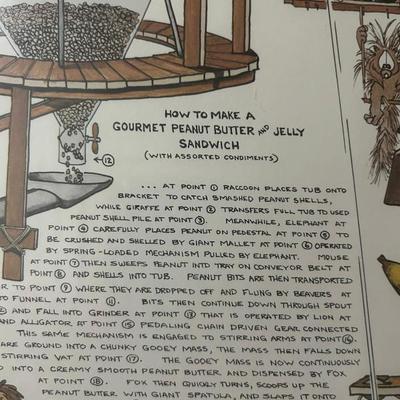 HOW TO MAKE A
GOURMET PEANUT BUTTER AND JELLY
SANDWICH
(WITH ASSORTED CONDIMENTS)
12
... AT POINT 1 RACCOON PLACES TUB ONTO
BRACKET TO CATCH SMASHED PEANUT SHELLS,
WHILE GIRAFFE AT POINT 2 TRANSFERS FULL TUB TO USED
PEANUT SHELL PILE AT POINT 3. MEANWHILE, ELEPHANT AT
POINT 4 CAREFULLY PLACES PEANUT ON PEDESTAL AT POINT 5 TO
BE CRUSHED AND SHELLED BY GIANT MALLET AT POINT 6 OPERATED
BY SPRING-LOADED MECHANISM PULLED BY ELEPHANT. MOUSE
AT POINT 7 THEN SWEEPS PEANUT INTO TRAY ON CONVEYOR BELT AT
POINT 8 AND SHELLS INTO TUB. PEANUT BITS ARE THEN TRANSPORTED
TO POINT 9 WHERE THEY ARE DROPPED OFF AND FLUNG BY BEAVERS AT
TO FUNNEL AT POINT 11. BITS THEN CONTINUE DOWN THROUGH SPOUT
AND FALL INTO GRINDER AT POINT 13 THAT IS OPERATED BY LION AT
AND ALLIGATOR AT POINT 15 PEDALING CHAIN DRIVEN GEAR CONNECTED
THIS SAME MECHANISM IS ENGAGED TO STIRRING ARMS AT POINT 16.
ARE GROUND INTO A CHUNKY GOOEY MASS, THE MASS THEN FALLS DOWN
STIRRING VAT AT POINT 17. THE GOOEY MASS IS NOW CONTINUOUSLY
INTO A CREAMY SMOOTH PEANUT BUTTER AND DISPENSED BY FOX
AT POINT 18. FOX THEN QUICKLY TURNS, SCOOPS UP THE
PEANUT BUTTER WITH GIANT SPATULA, AND SLAPS IT ONTO